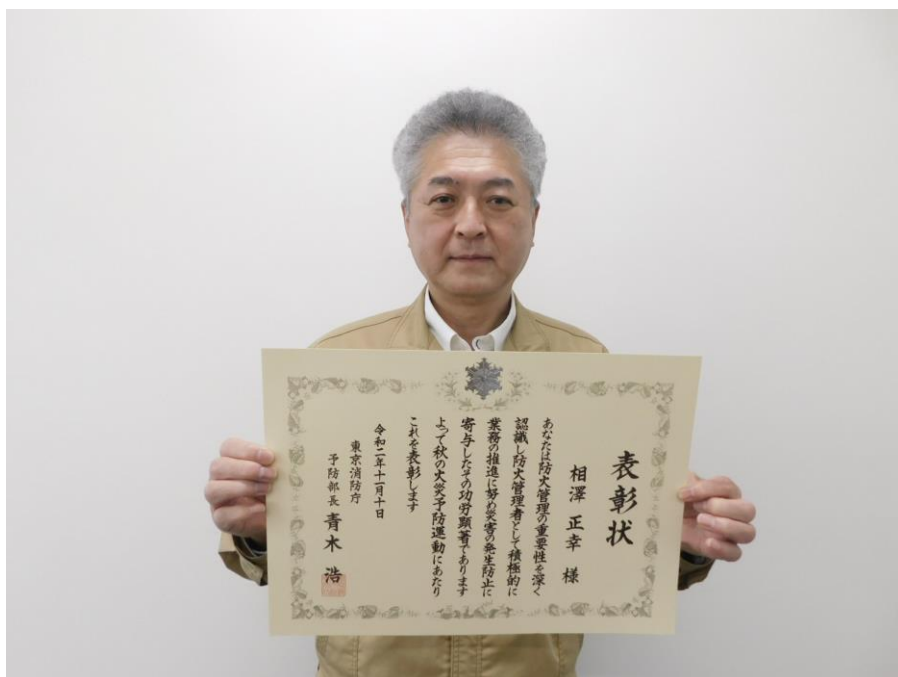 表彰状
相澤正幸 様
あなたは防火管理の重要性を深く
認識し防火管理者として積極的に
業務の推進に努め災害の発生防止に
寄与したその功労顕著であります
よって秋の火災予防運動にあたり
これを表彰します
令和二年十一月十日
東京消防庁
予防部長 青木 浩